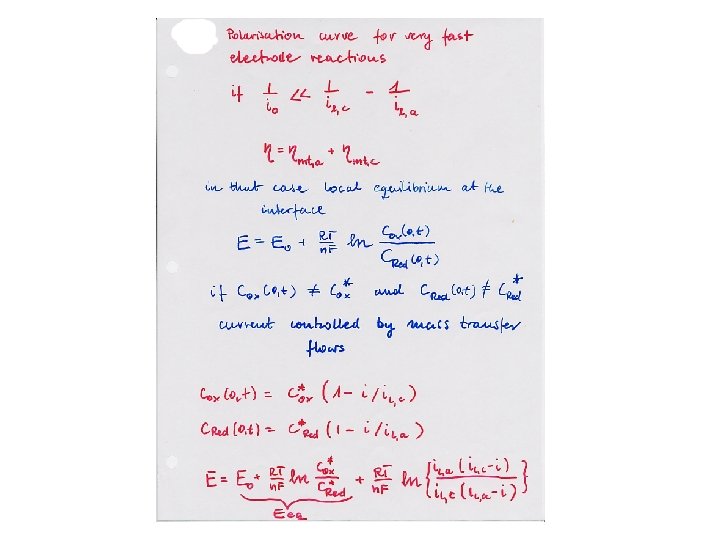 Polarisation curve for very fast
electrode reactions
if 1/i₀ << 1/i_l,c - 1/i_l,a
η = η_mt,a + η_mt,c
in that case local equilibrium at the
interface
E = E₀ + RT/nF ln C_ox(0,t)/C_Red(0,t)
if C_ox(0,t) ≠ C*_ox and C_Red(0,t) ≠ C*_Red
current controlled by mass transfer
flows
C_ox(0,t) = C*_ox (1 - i/i_l,c)
C_Red(0,t) = C*_Red (1 - i/i_l,a)
E = E₀ + RT/nF ln C*_ox/C*_Red + RT/nF ln { i_l,a (i_l,c - i) / i_l,c (i_l,a - i) }
E_eq